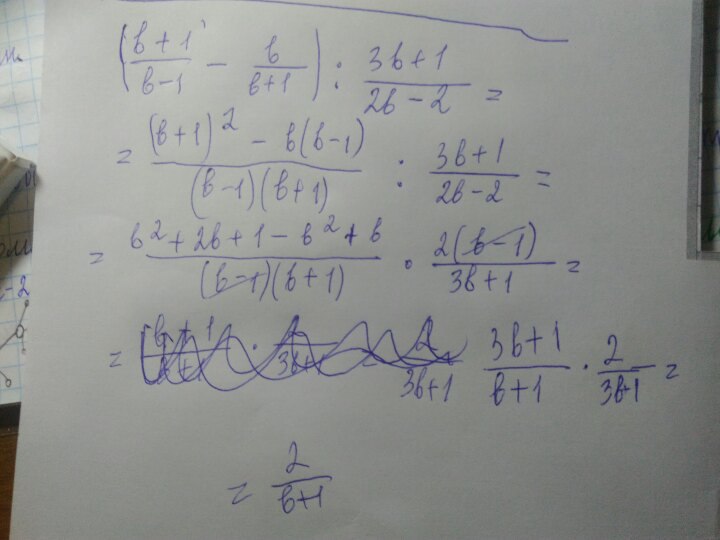 ((b+1)/(b-1) - b/(b+1)) : (3b+1)/(2b-2) =
= ((b+1)² - b(b-1))/((b-1)(b+1)) : (3b+1)/(2b-2) =
= (b²+2b+1-b²+b)/((b-1)(b+1)) · 2(b-1)/(3b+1) =
= (3b+1)/(b+1) · 2/(3b+1) =
= 2/(b+1)